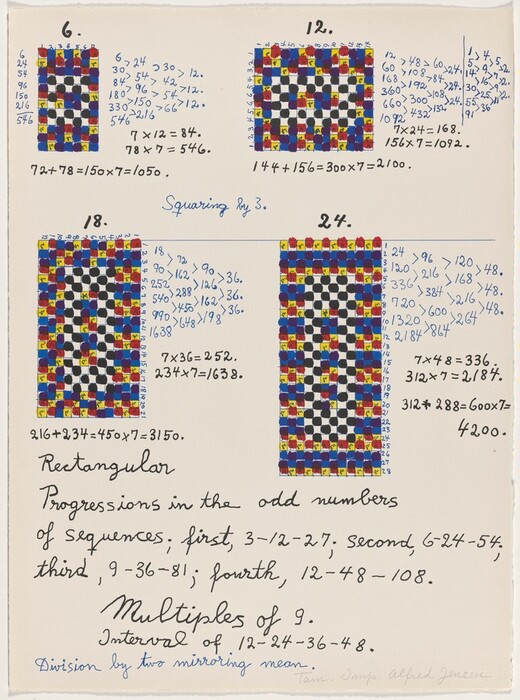 6.
6
24
54
96
150
216
546
6 > 24
30 > 54 > 30 > 12.
84 > 96 > 42
180 > 150 > 54 > 12.
330 > 216 > 66 > 12.
546
7 x 12 = 84.
78 x 7 = 546.
72 + 78 = 150 x 7 = 1050.
12.
12 > 48 > 60
60 > 108 > 84 > 24.
168 > 192 > 108 > 24.
360 > 300 > 132 > 24.
660 > 432
1092
7 x 24 = 168.
156 x 7 = 1092.
144 + 156 = 300 x 7 = 2100.
Squaring by 3.
18.
18 > 72
90 > 162 > 90 > 36.
252 > 288 > 126 > 36.
540 > 450 > 162 > 36.
990 > 648 > 198
1638
7 x 36 = 252.
234 x 7 = 1638.
216 + 234 = 450 x 7 = 3150.
24.
24 > 96 > 120
120 > 216 > 168 > 48.
336 > 384 > 216 > 48.
720 > 600 > 264 > 48.
1320 > 864
2184
7 x 48 = 336.
312 x 7 = 2184.
312 + 288 = 600 x 7 =
4200.
Rectangular
Progressions in the odd numbers
of sequences; first, 3-12-27; second, 6-24-54;
third, 9-36-81; fourth, 12-48-108.
Multiples of 9.
Interval of 12-24-36-48.
Division by two mirroring mean.
Alfred Jensen